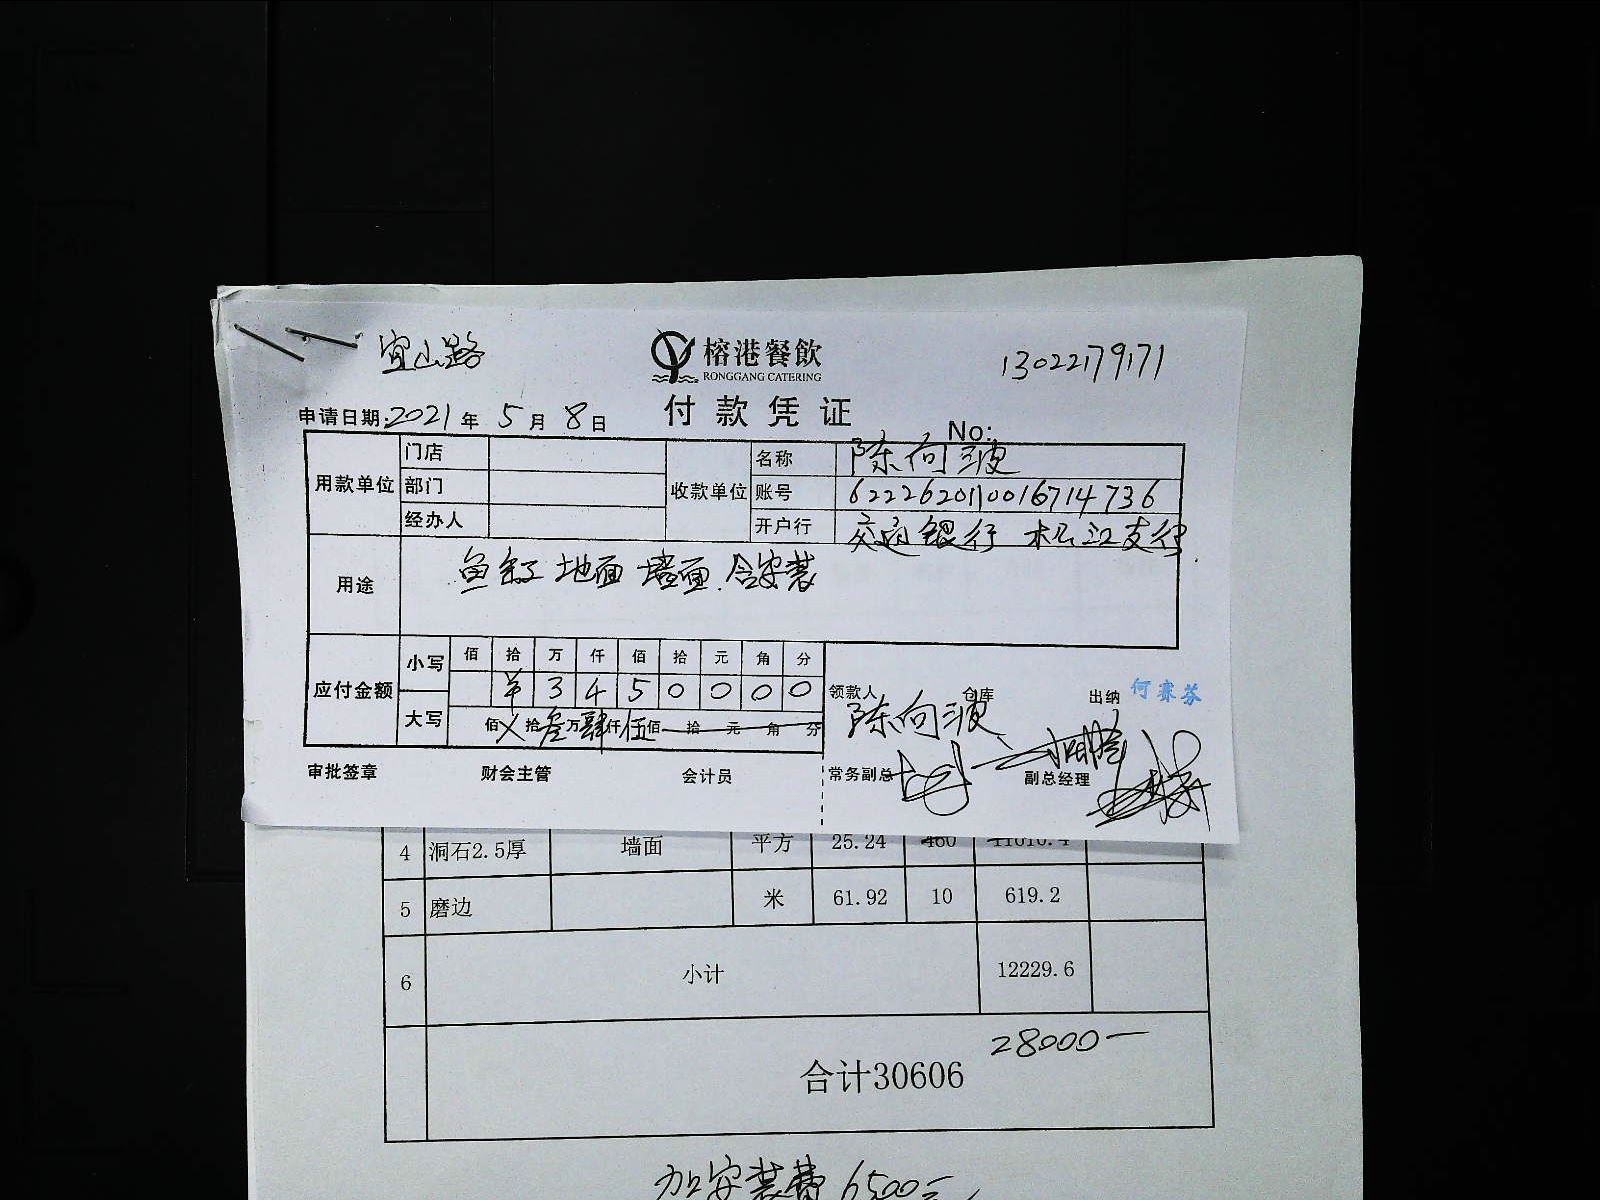 宜山路
榕港餐飲
RONGGANG CATERING
13022179171
申请日期: 2021年5月8日
付款凭证
No:
用款单位 门店 收款单位 名称 陈向波
部门 账号 6222620110016714736
经办人 开户行 交通银行 松江支行
用途 鱼缸 地面 墙面.含安装
应付金额 小写 佰 拾 万 仟 佰 拾 元 角 分
¥ 3 4 5 0 0 0 0
大写 佰 X 拾 叁 万 肆 仟 伍 佰 拾 元 角 分
领款人 仓库 出纳 何赛芬
陈向波
审批签章 财会主管 会计员 常务副总 副总经理
4 洞石2.5厚 墙面 平方 25.24 460 11610.4
5 磨边 米 61.92 10 619.2
6 小计 12229.6
28000一
合计30606
加安装费 6500元